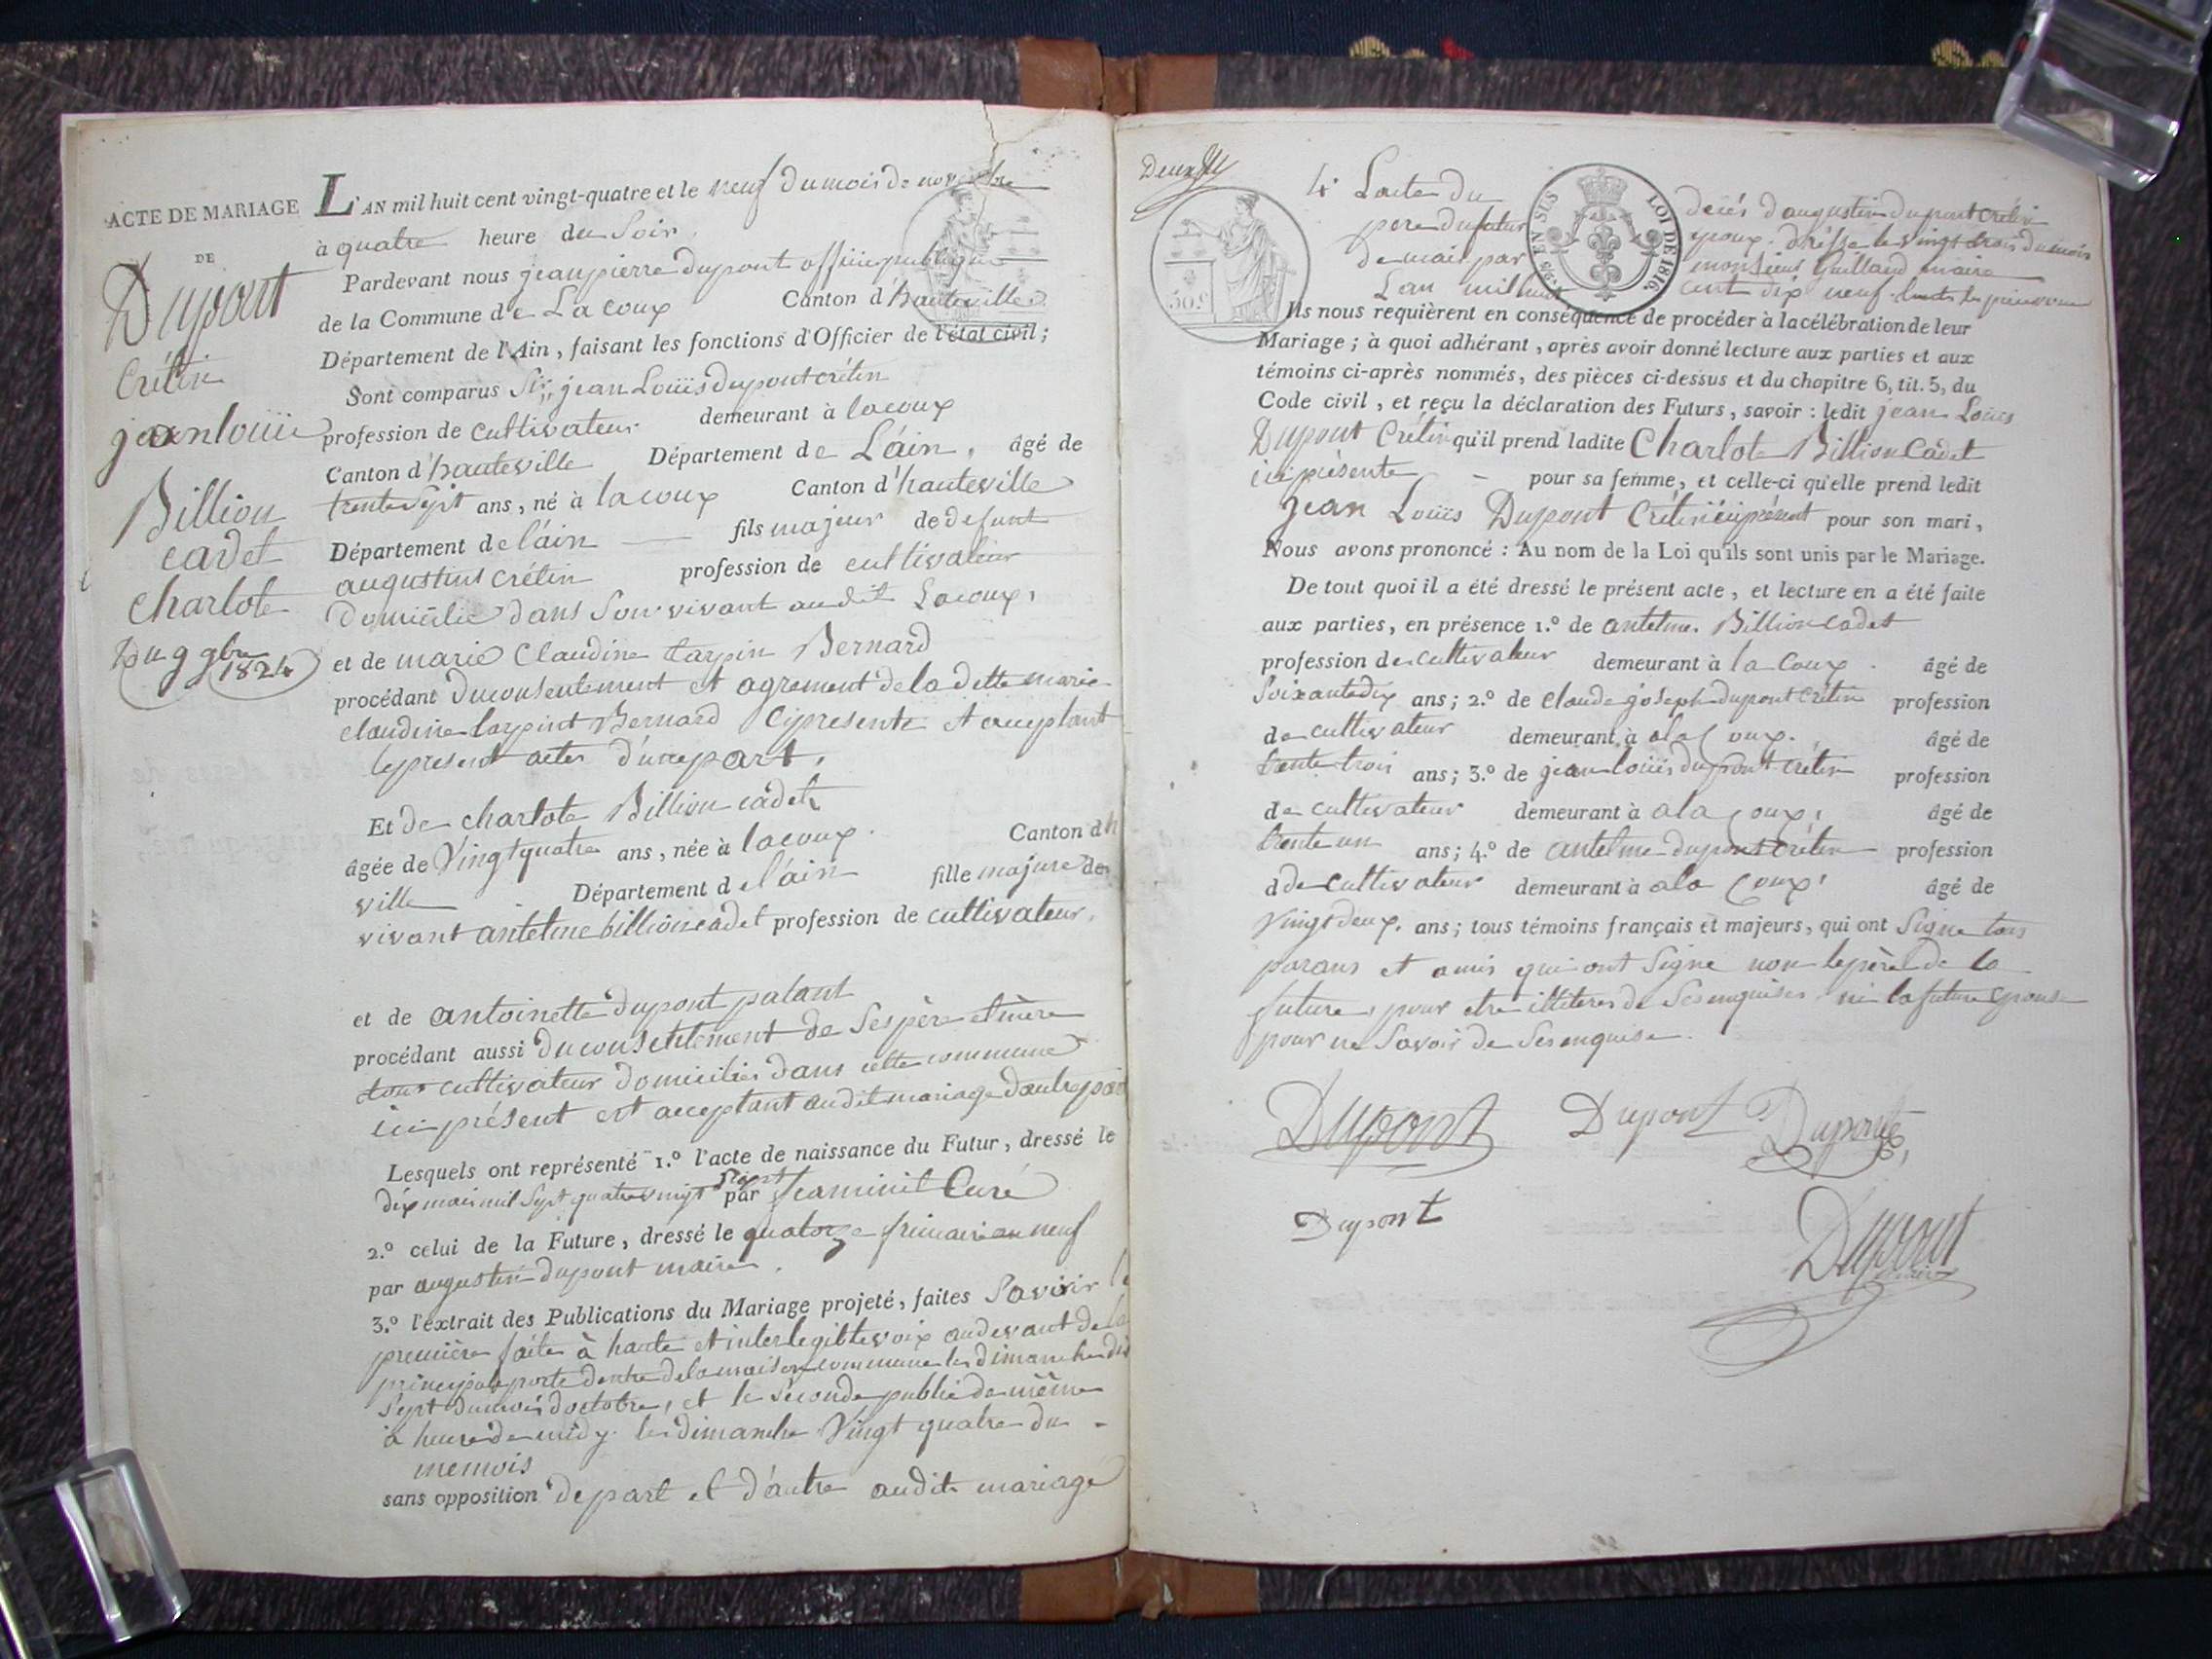 ACTE DE MARIAGE
DE
Dupont
Crétin
jean louiis
Billion
cadet
charlote
Du 9 9bre
1824
L'AN mil huit cent vingt-quatre et le neuf du mois de novembre
à quatre heure du Soir
Pardevant nous jean pierre dupont officie publique
de la Commune de La coux Canton d'hauteville
Département de l'Ain, faisant les fonctions d'Officier de l'état civil;
Sont comparus Sir jean Louiis dupont crétin
profession de cultivateur demeurant à lacoux
Canton d'hauteville Département de L'áin, âgé de
trente sept ans, né à lacoux Canton d'hauteville
Département de l'áin fils majeur de defunt
augustins crétin profession de cultivateur
Domicilié dans Son vivant audit Lacoux,
et de marie Claudine tarpin Bernard
procédant du consentement et agrement de la ditte marie
claudine tarpint Bernard Cy presente et acceptant
le present acte d'une part,
Et de charlote Billion cadet
âgée de Vingt quatre ans, née à lacoux. Canton d'h
ville Département de l'áin fille majure de
vivant antelme billion cadet profession de cultivateur,
et de antoinette dupont palant
procédant aussi du consentement de Ses père et mère
tous cultivateur domiciliés dans cette commune
ici présent et acceptant audit mariage d'autre part
Lesquels ont représenté 1.º l'acte de naissance du Futur, dressé le
dix mai mil Sept quatre vingt Sept par Curé
2.º celui de la Future, dressé le quatorze frimaire an neuf
par augustin dupont maire.
3.º l'extrait des Publications du Mariage projeté, faites Savoir la
première faite à haute et interlegible voix au devant de la
principale porte dentré de la maison commune le dimanche dix
Sept du mois d'octobre, et le Séconde publié de même
à heure de midy le dimanche Vingt quatre du
me mois
sans opposition de part et d'autre audit mariage
Deux
4º Lacte du décés d'augustin dupont crétin
pere du futur époux. dréssé le vingt trois du mois
de mai par monsieur Guillaud maire
Lan mil huit cent dix neuf
EN SUS
LOI DE 1816.
50.c
Ils nous requièrent en conséquence de procéder à la célébration de leur
Mariage; à quoi adhérant, après avoir donné lecture aux parties et aux
témoins ci-après nommés, des pièces ci-dessus et du chapitre 6, tit. 5, du
Code civil, et reçu la déclaration des Futurs, savoir : ledit jean Louis
Dupont Crétin qu'il prend ladite Charlote Billion Cadet
ici présente pour sa femme, et celle-ci qu'elle prend ledit
Jean Louiis Dupont Crétin ici présent pour son mari,
Nous avons prononcé : Au nom de la Loi qu'ils sont unis par le Mariage.
De tout quoi il a été dressé le présent acte, et lecture en a été faite
aux parties, en présence 1.º de antelme Billion cadet
profession de cultivateur demeurant à la Coux. âgé de
Soixante dix ans; 2.º de claude joseph dupont crétin profession
de cultivateur demeurant à a la Coux. âgé de
trente trois ans; 3.º de jean louiis dupont crétin profession
de cultivateur demeurant à a la Coux, âgé de
trente un ans; 4.º de antelme dupont crétin profession
d de cultivateur demeurant à a la Coux, âgé de
Vingt deux. ans; tous témoins français et majeurs, qui ont Signe tous
parans et amis qui ont Signe non le père de la
future, pour etre illiteres de Ses enquises ni la future épouse
pour ne Savoir de Ses enquise.
Dupont Dupont Dupont
Dupont
Dupont
maire